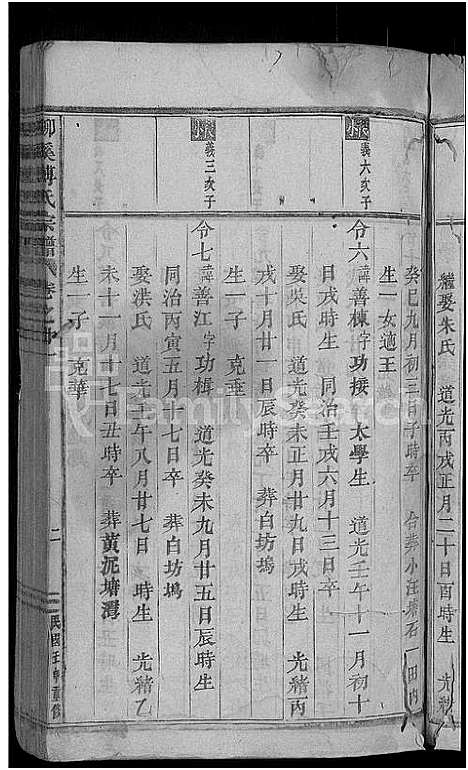 繼娶朱氏 道光丙戌正月二十日酉時生 光緒
癸巳九月初三日子時卒 合葬小汪塘石一田內
生一女適王
義六次子
令六諱善棟字功接 太學生 道光壬午十一月初十
日戌時生 同治壬戌六月十三日卒
娶吳氏 道光癸未正月廿九日戌時生 光緒丙
戌十月廿一日辰時卒 葬白坊塢
生一子 克垂
義三次子
令七諱善江字功楫 道光癸未九月廿五日辰時生
同治丙寅五月十七日卒 葬白坊塢
娶洪氏 道光壬午八月廿七日 時生 光緒乙
未十一月十七日丑時卒 葬黃泥塘灣
生一子 克華
柳溪傅氏宗譜 卷之
二
民國壬申重修
FamilySearch